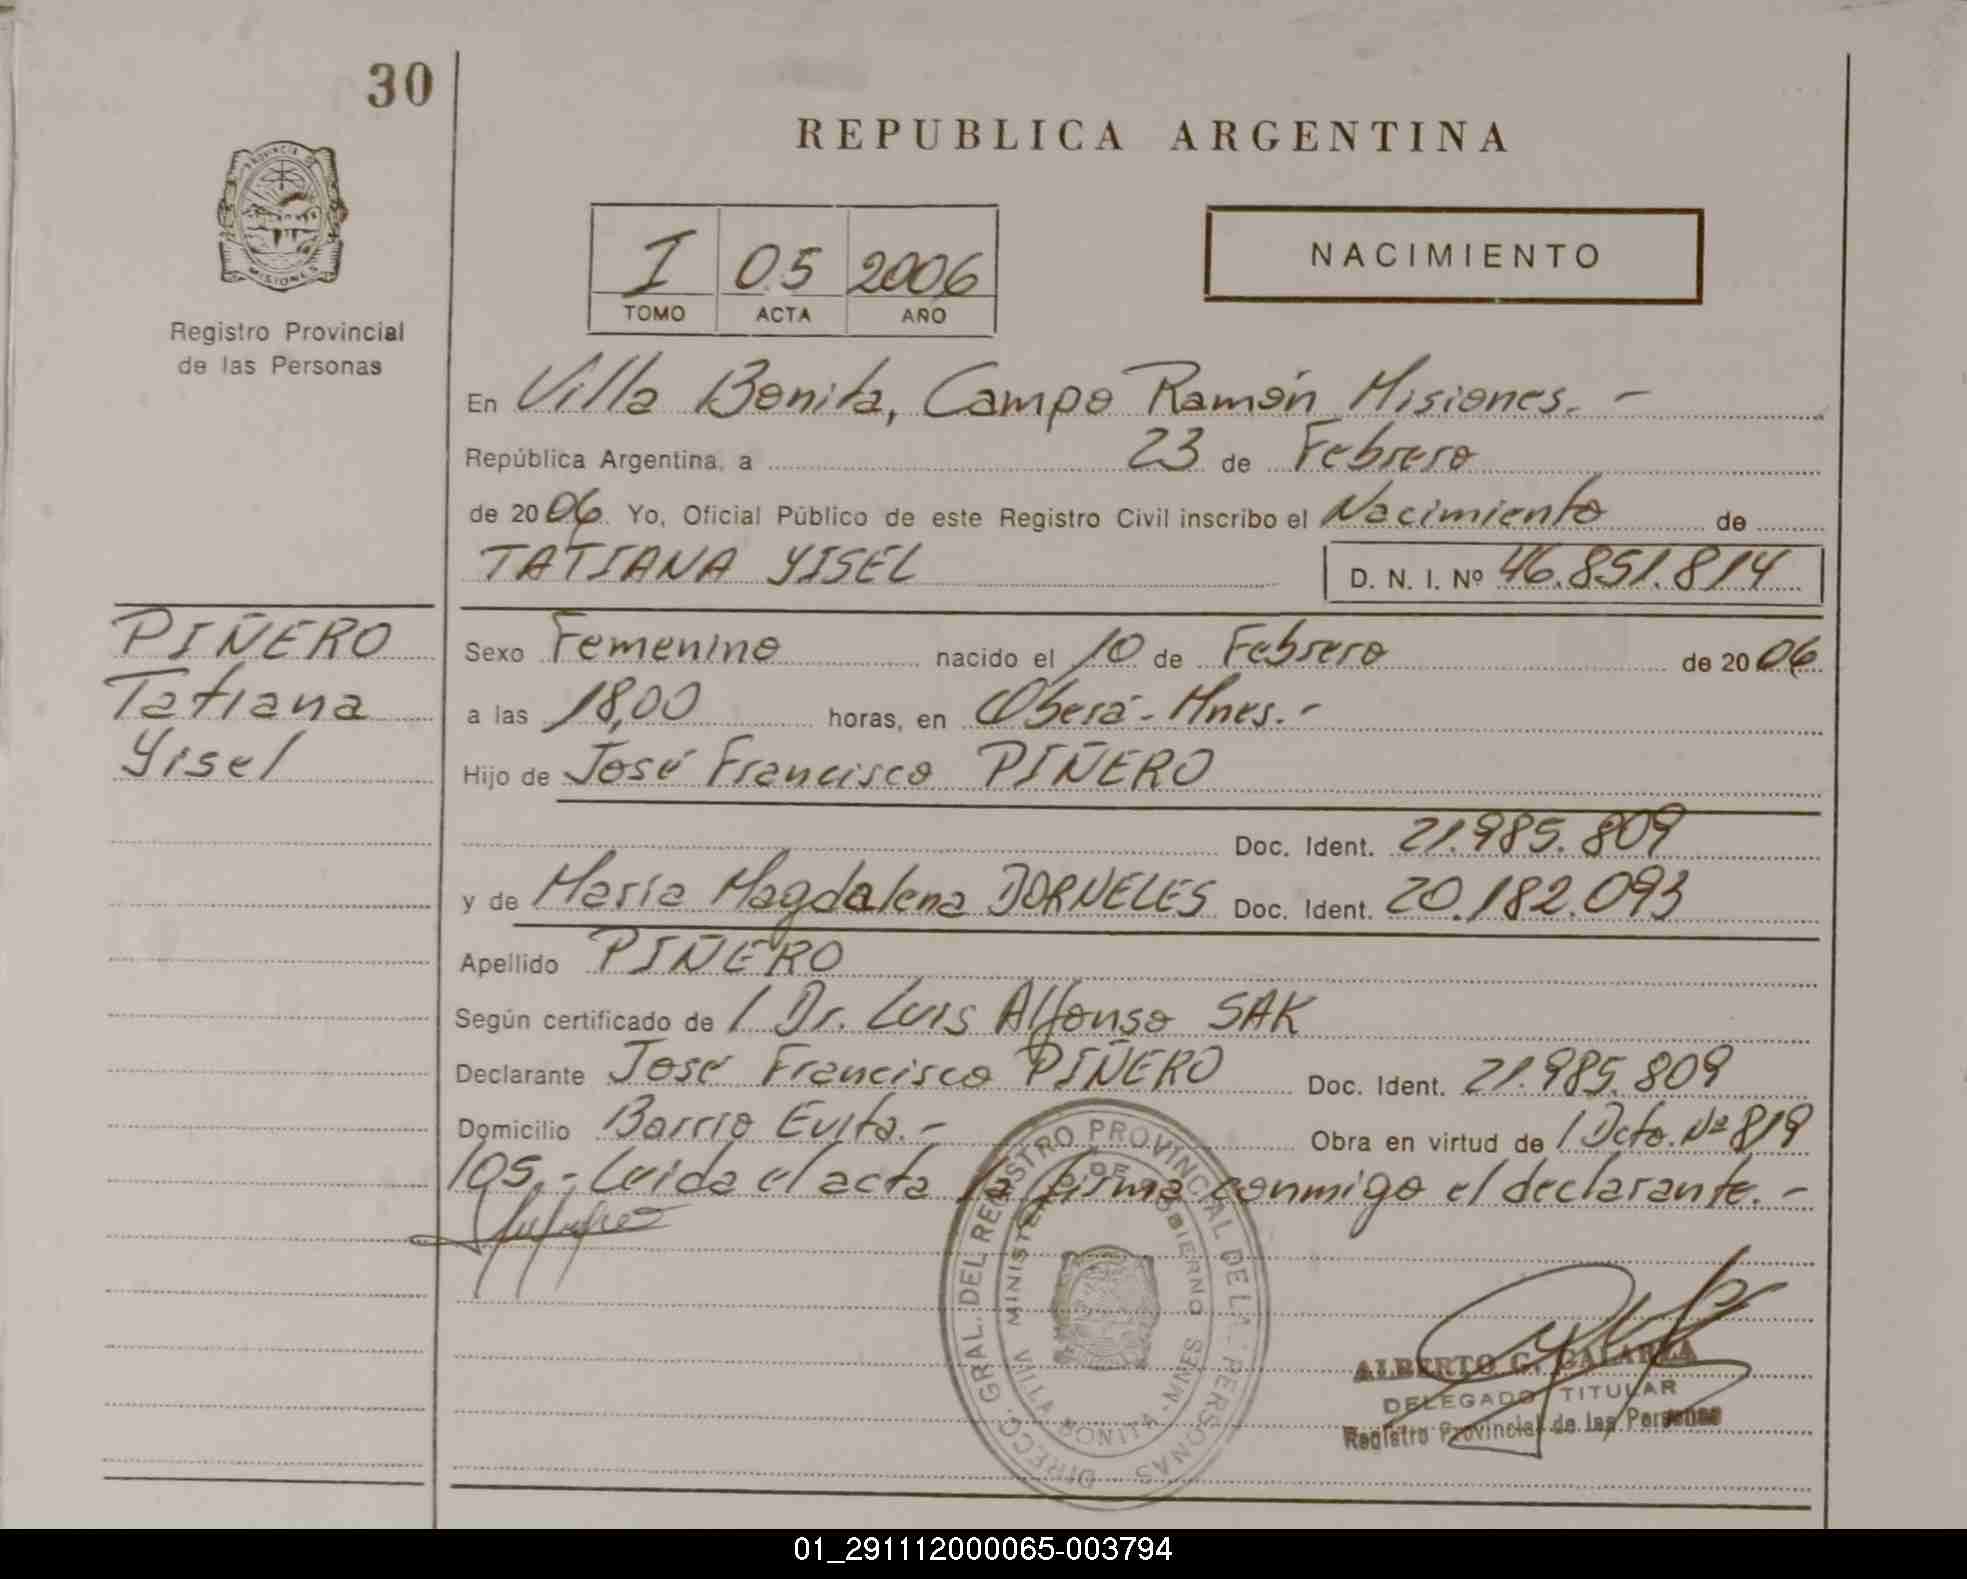 30
REPUBLICA ARGENTINA
PROVINCIA DE
MISIONES
Registro Provincial
de las Personas
I 05 2006
TOMO ACTA AÑO
NACIMIENTO
En Villa Bonita, Campo Ramón Misiones. -
República Argentina, a 23 de Febrero
de 2006. Yo, Oficial Público de este Registro Civil inscribo el Nacimiento de
TATIANA YISEL D. N. I. Nº 46.851.814
PIÑERO
Tatiana
Yisel
Sexo Femenino nacido el 10 de Febrero de 2006
a las 18,00 horas, en Oberá - Mnes. -
Hijo de José Francisco PIÑERO
Doc. Ident. 21.985.809
y de María Magdalena DORNELES Doc. Ident. 20.182.093
Apellido PIÑERO
Según certificado de / Dr. Luis Alfonso SAK
Declarante José Francisco PIÑERO Doc. Ident. 21.985.809
Domicilio Barrio Evita. - Obra en virtud de / Dcto. Nº 819
/05. - Leida el acta la firma conmigo el declarante. -
DIRECC. GRAL. DEL REGISTRO PROVINCIAL DE LAS PERSONAS
MINISTERIO DE GOBIERNO
VILLA BONITA - MNES
ALBERTO G. GALARZA
DELEGADO TITULAR
Registro Provincial de las Personas
01_291112000065-003794